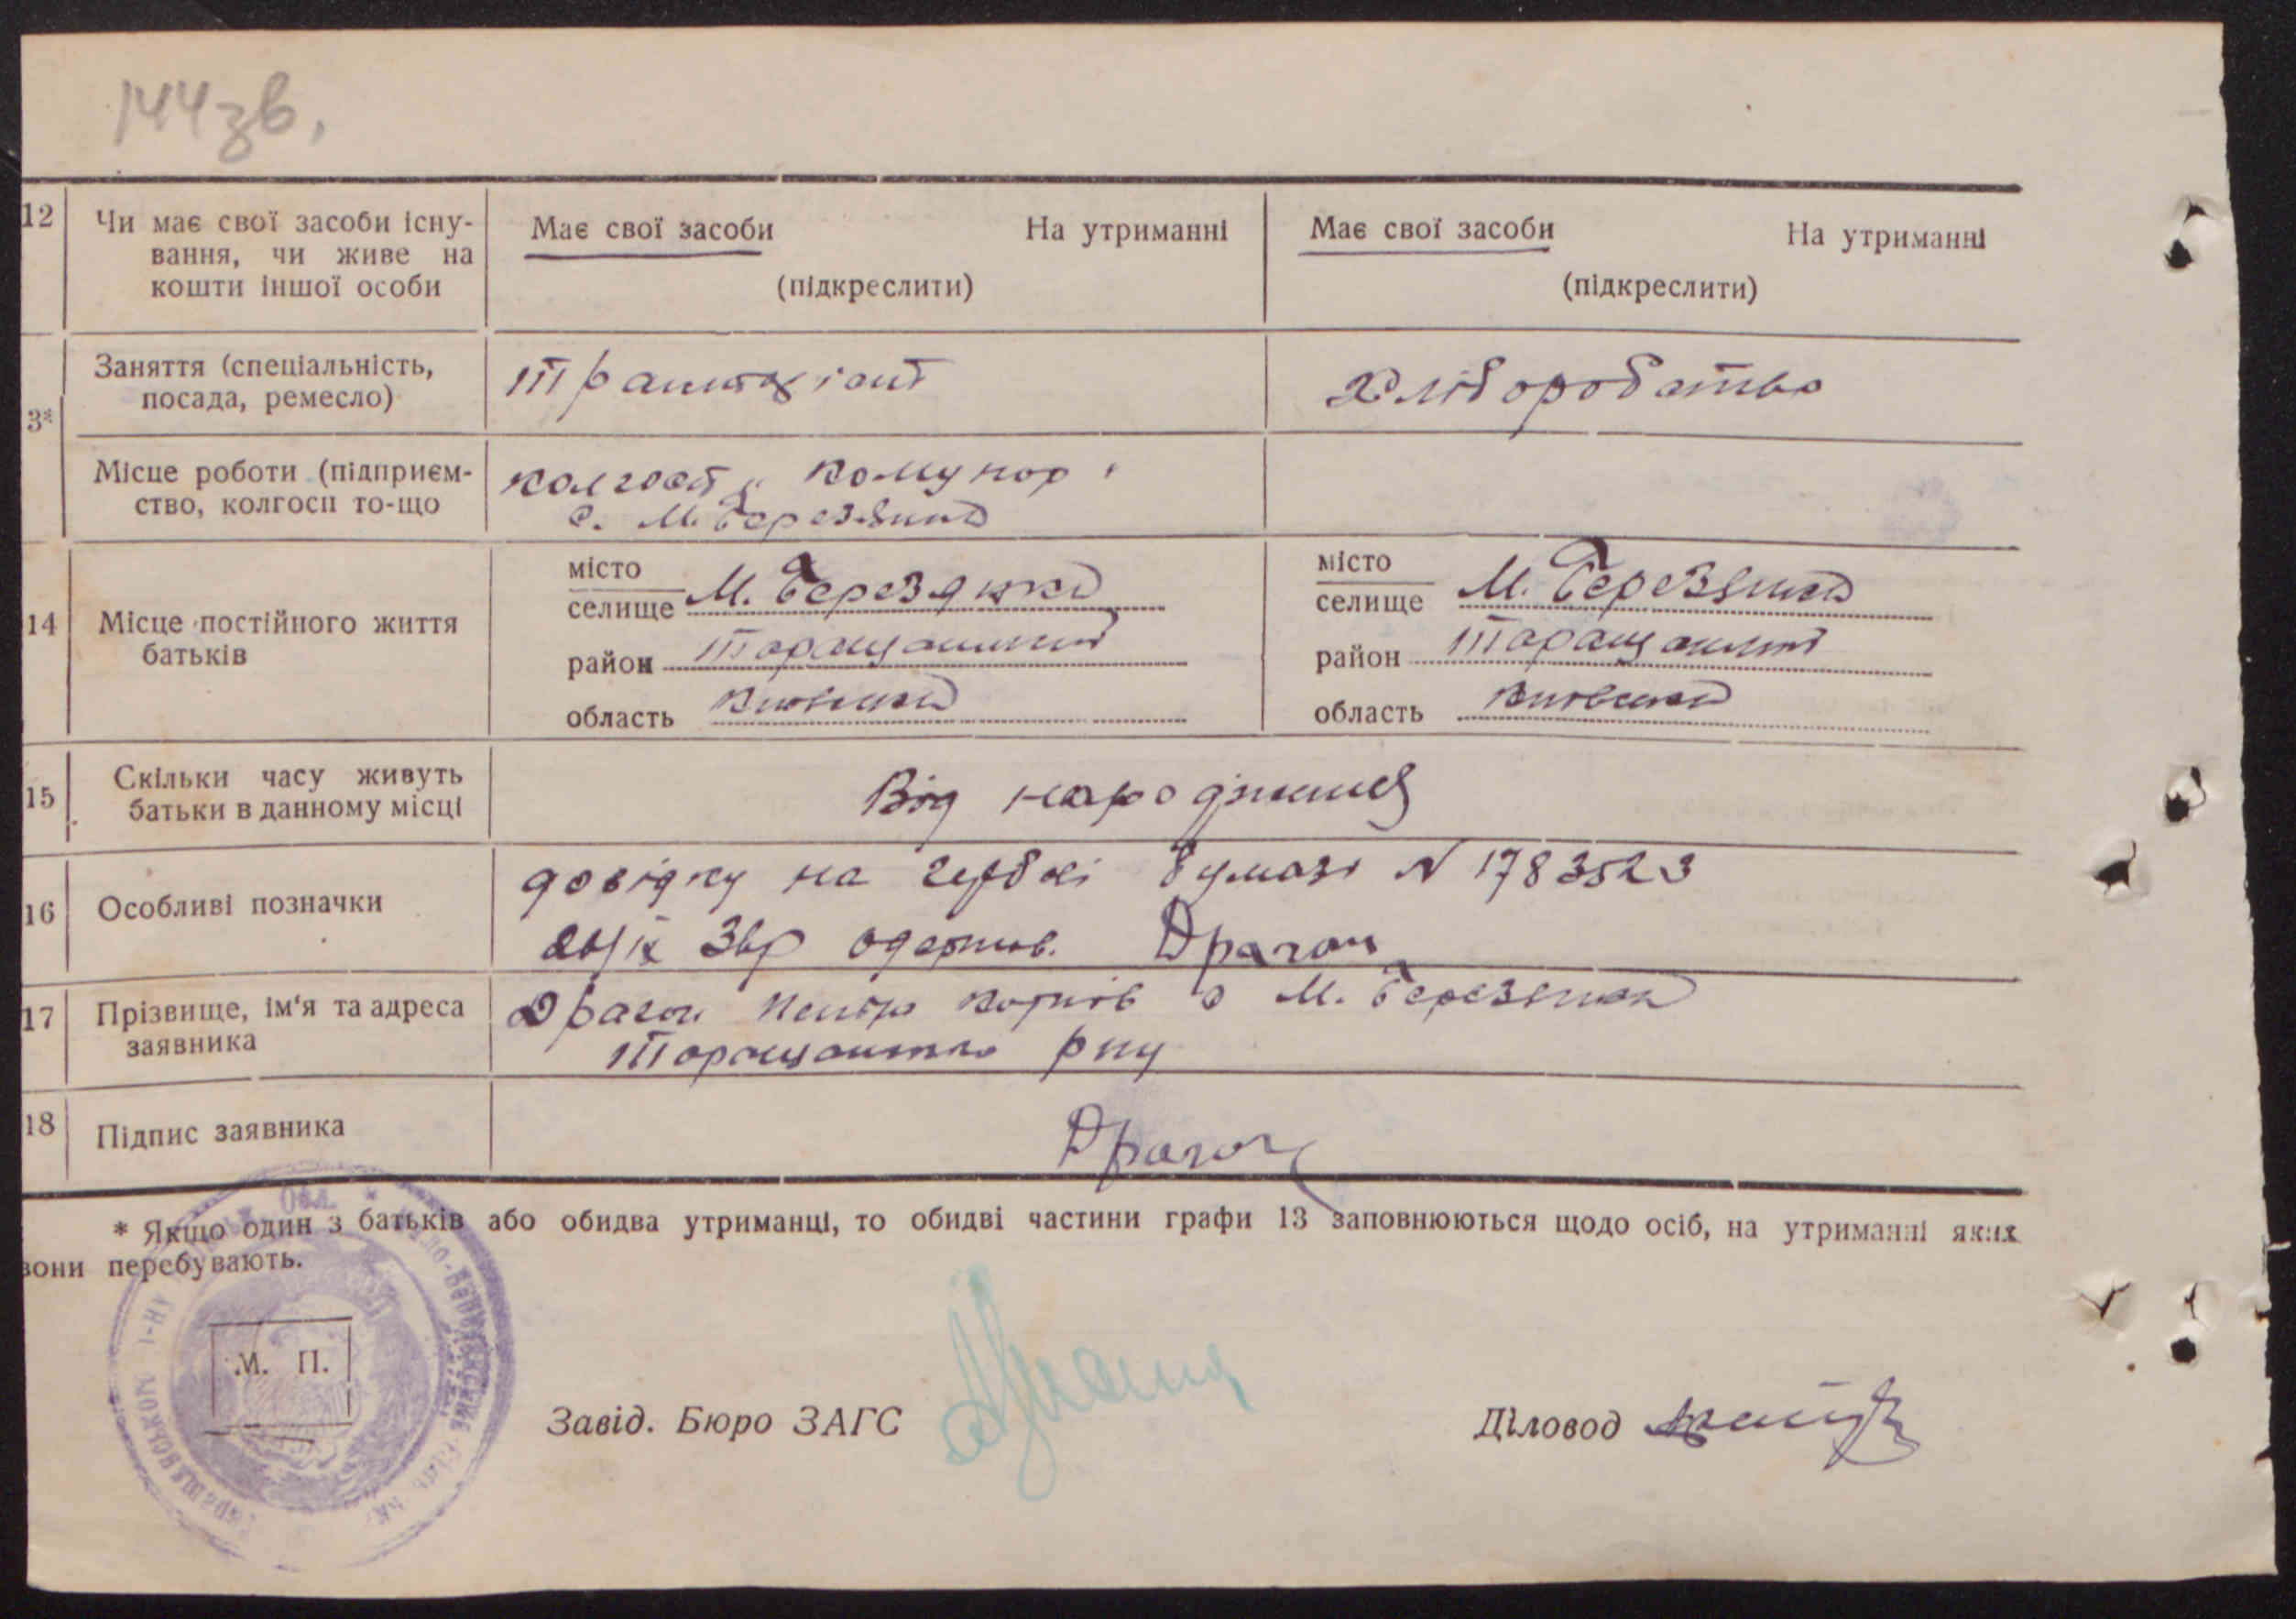 144зв.
12 Чи має свої засоби існу-
вання, чи живе на
кошти іншої особи
Має свої засоби На утриманні
(підкреслити)
Має свої засоби На утриманні
(підкреслити)
3* Заняття (спеціальність,
посада, ремесло)
Хліборобство
Місце роботи (підприєм-
ство, колгосп то-що
колгосп „Комунар"
с. М. Березянка
14 Місце постійного життя
батьків
місто
селище М. Березянка
район Таращанський
область Київська
місто
селище М. Березянка
район Таращанський
область Київська
15 Скільки часу живуть
батьки в данному місці
Від народження
16 Особливі позначки
довідку на гербові бумазі N 1783523
Звр одержив. Драган
17 Прізвище, ім'я та адреса
заявника
Драган с М. Березянка
Таращанського р-ну
18 Підпис заявника
Драган
* Якщо один з батьків або обидва утриманці, то обидві частини графи 13 заповнюються щодо осіб, на утриманні яких
вони перебувають.
М. П.
Завід. Бюро ЗАГС
Діловод